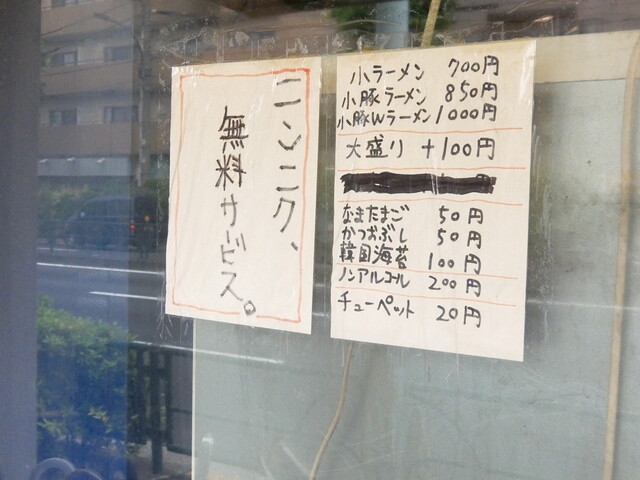 ニンニク、
無料サービス。
小ラーメン 700円
小豚ラーメン 850円
小豚Wラーメン 1000円
大盛り +100円
なまたまご 50円
かつおぶし 50円
韓国海苔 100円
ノンアルコール 200円
チューペット 20円